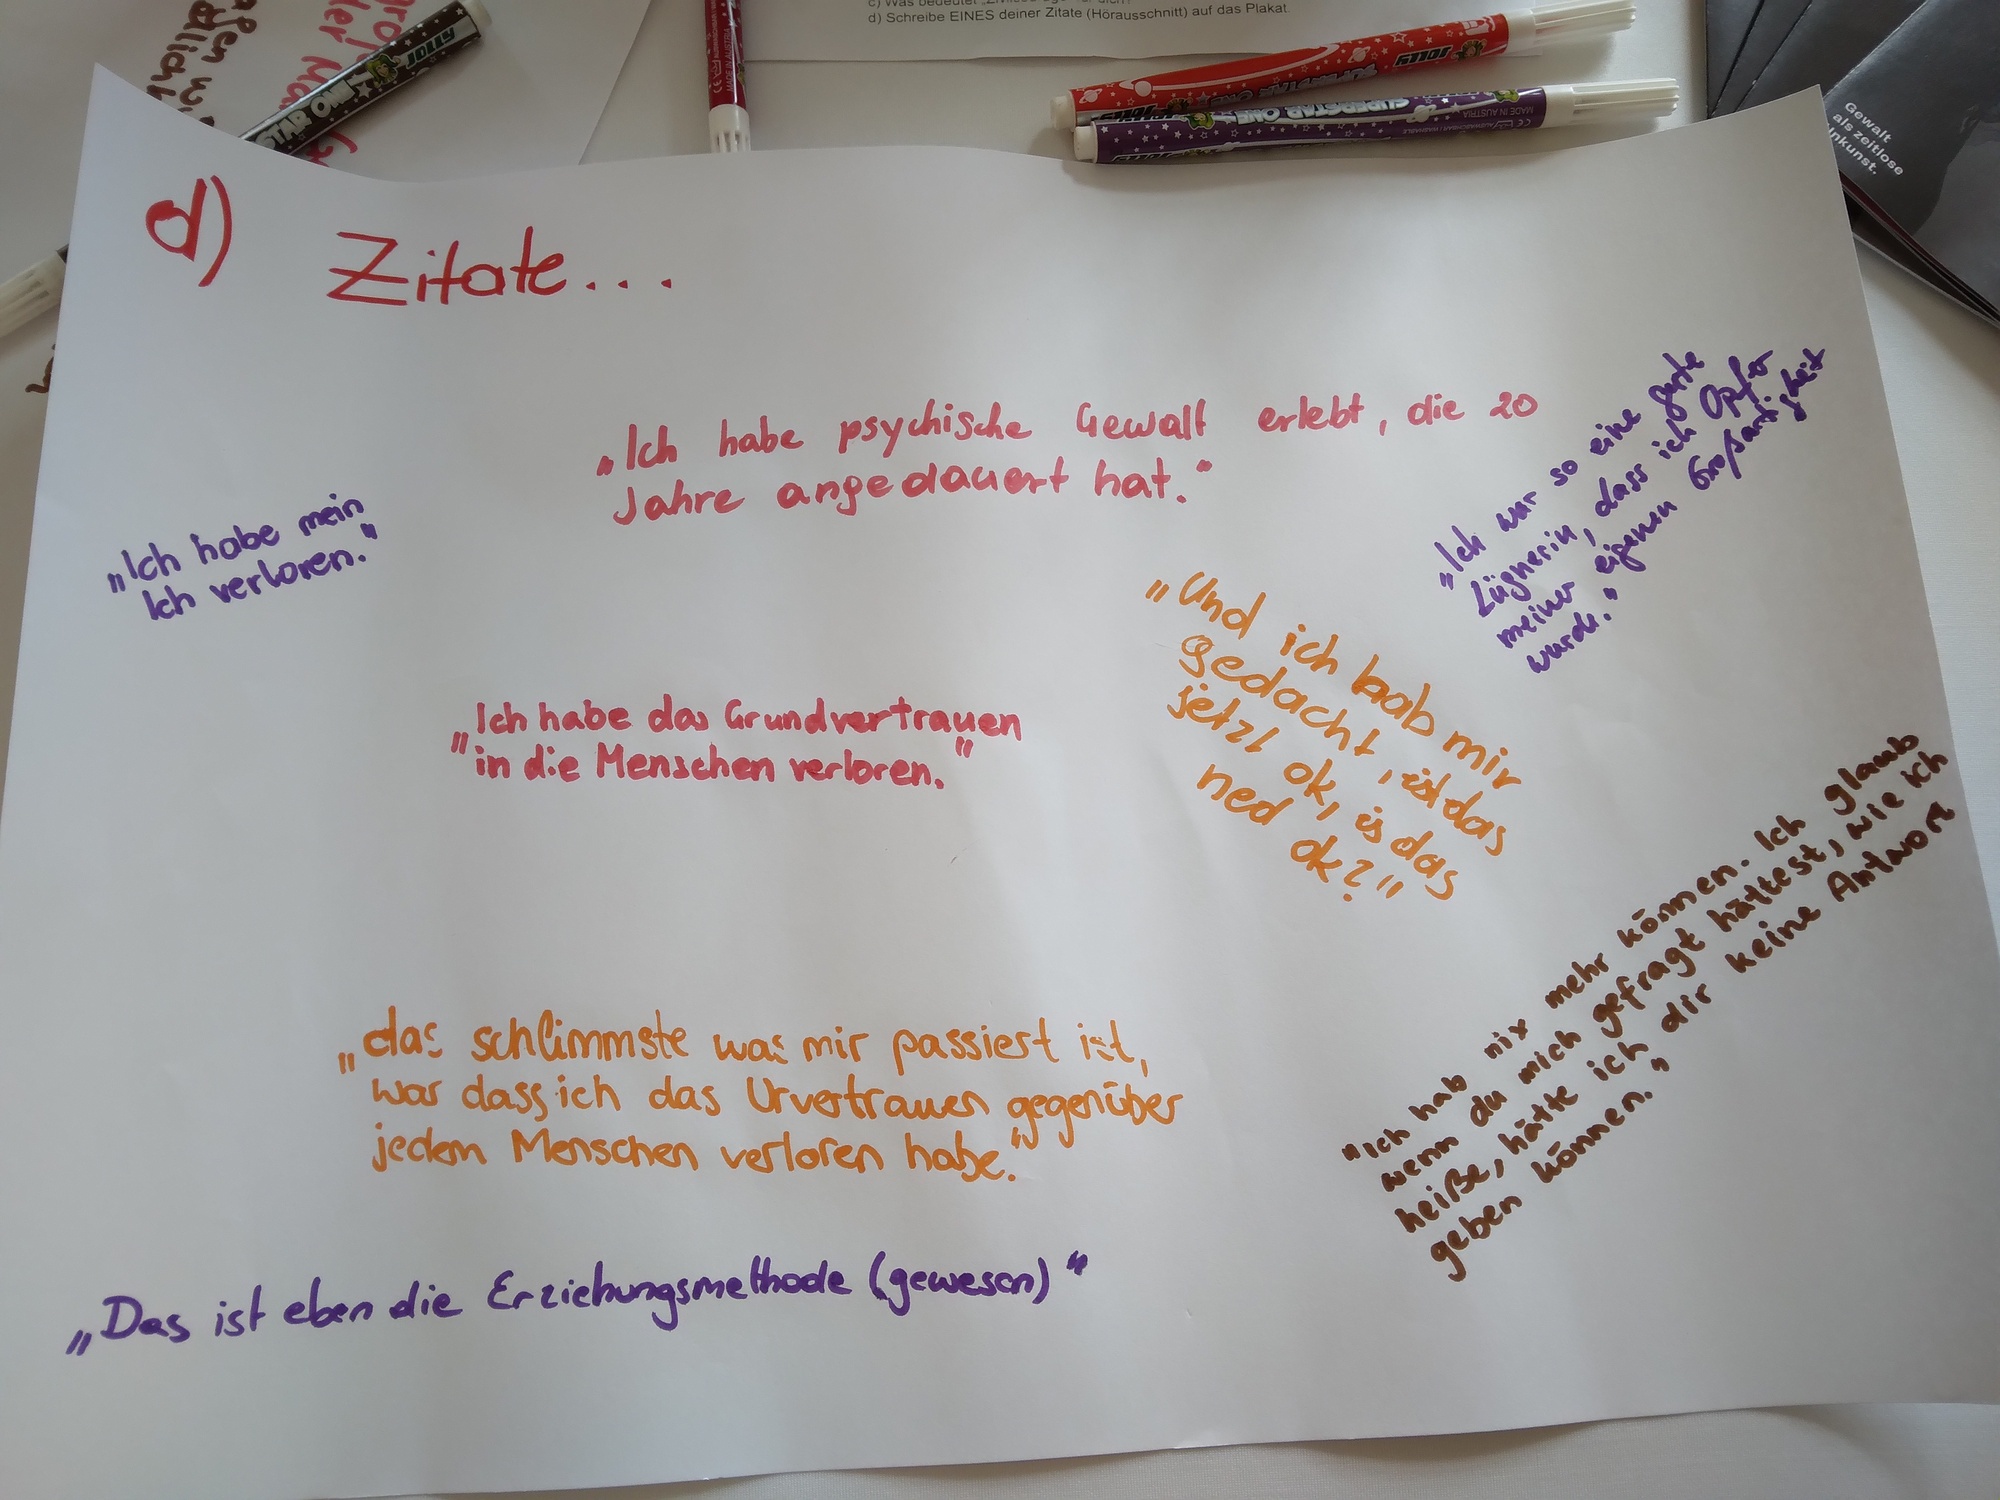 d) Schreibe EINES deiner Zitate (Hörausschnitt) auf das Plakat.
JOLLY
STAR ONE
JOLLY
SUPERSTAR ONE
SUPERSTAR ONE
MADE IN AUSTRIA
Gewalt
als zeitlose
d) Zitate...
„Ich habe psychische Gewalt erlebt, die 20
Jahre angedauert hat."
„Ich habe mein
Ich verloren."
„Ich war so eine gute
Lügnerin, dass ich Opfer
meiner eigenen Großartigkeit
wurde."
„Und ich hab mir
gedacht, ist das
jetzt ok, is das
ned ok?"
„Ich habe das Grundvertrauen
in die Menschen verloren."
"Ich hab nix mehr können. Ich glaub
wenn du mich gefragt hättest, wie ich
heiße, hätte ich dir keine Antwort
geben können."
„das schlimmste was mir passiert ist,
war dass ich das Urvertrauen gegenüber
jedem Menschen verloren habe."
„Das ist eben die Erziehungsmethode (gewesen)"